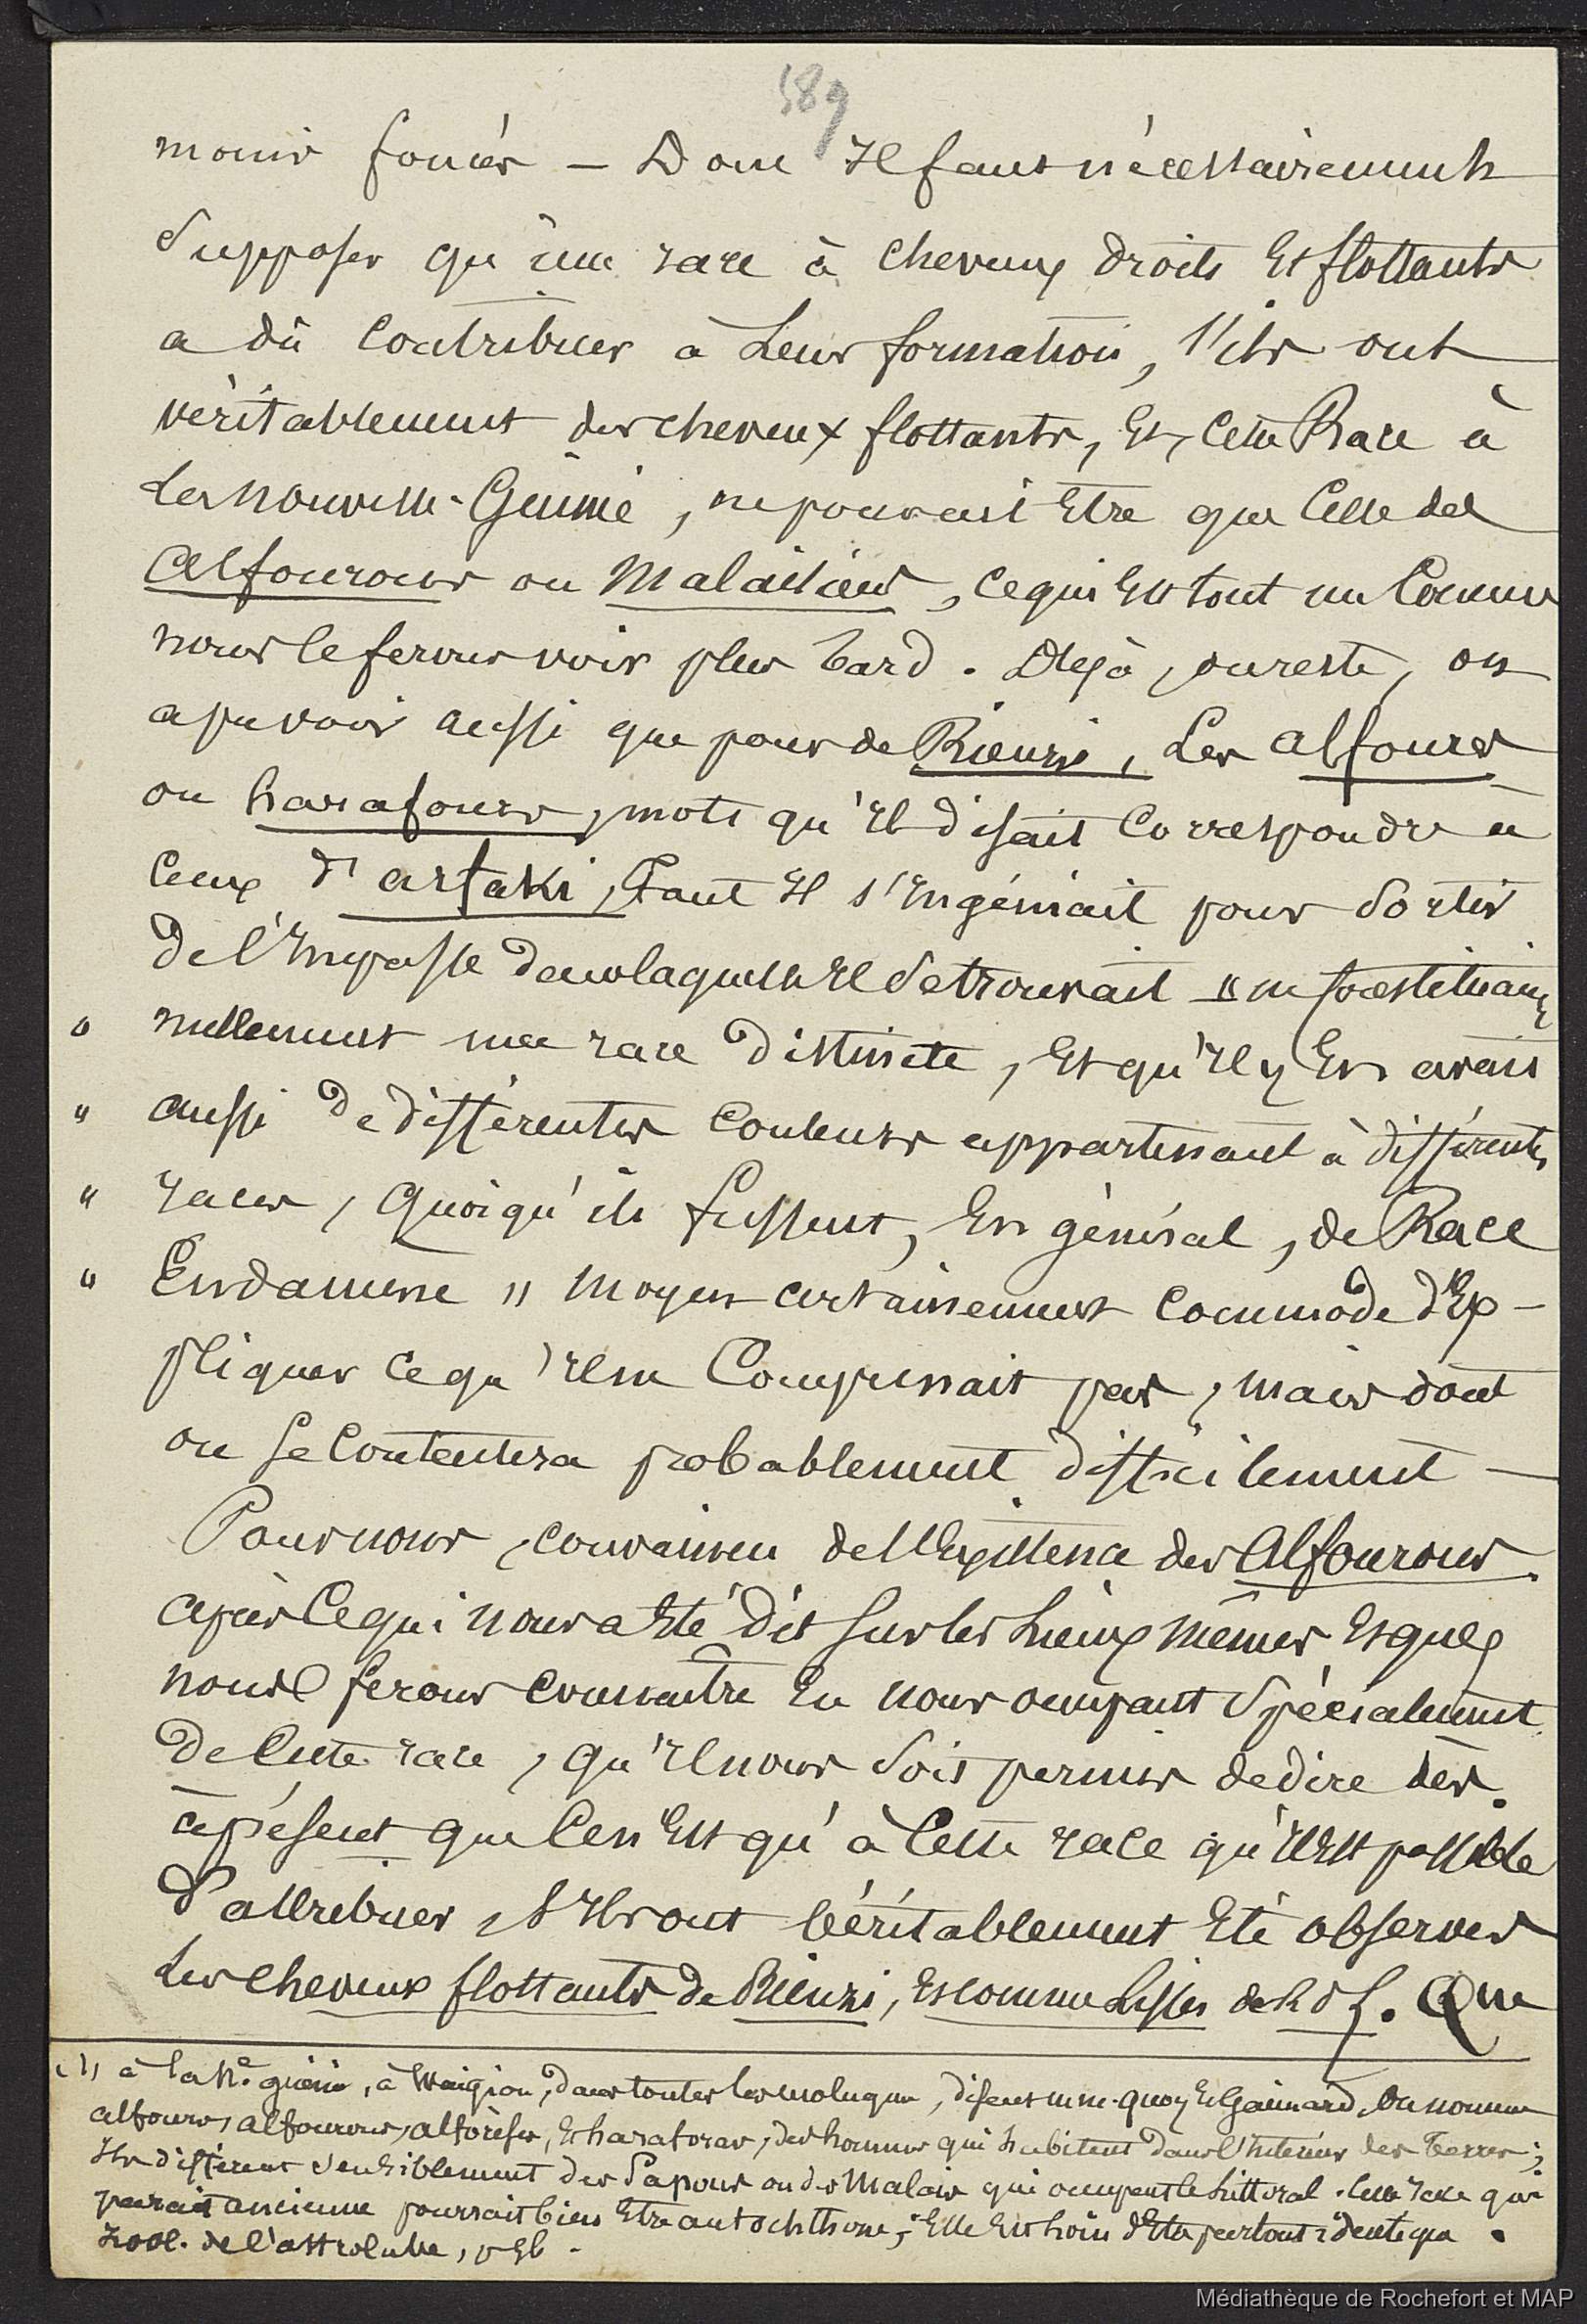 589
moins foncés – Donc Il faut nécessairement
supposer qu'une race à cheveux droits Et flottants
a dû Contribuer à Leur formation, s'ils ont
véritablement des cheveux flottants, Et, Cette Race à
La nouvelle-Guinée, ne pouvait Etre que Celle des
Alfourous ou Malaisiens, ce qui Est tout un Comme
nous le ferons voir plus tard. Déjà, du reste, on
a pu voir aussi que pour de Rienzi, Les alfours
ou harafours, mots qu'Il disait Correspondre à
Ceux d'arfaki, Tant Il s'Ingéniait pour Sortir
De l'Impasse dans laquelle Il se trouvait "ne constituaient
" nullement une race Distincte, Et qu'Il y En avait
" aussi De différentes Couleurs appartenant à différentes
" races, quoiqu'ils fussent, En général, de Race
" Endamene " moyen certainement commode d'Ex-
pliquer ce qu'Il ne Comprenait pas, mais dont
on se Contentera probablement difficilement –
Pour nous, convaincu de l'Existence des Alfourous
après Ce qui nous a Eté dit sur les Lieux mêmes Et que
nous ferons connaître En nous occupant Spécialement
De Cette race, qu'Il nous soit permis de dire dès
à présent que Ce n'Est qu'à Cette race qu'Il Est possible
d'attribuer, s'Ils ont Véritablement Eté observés
Les cheveux flottants de Rienzi, Et comme Lisses de . Que
(1) à la Nle guinée, à Waigiou, dans toutes les moluques, disent mm. quoy Et Gaimard, On nomme
alfours, alfourous, alforèses, Et haraforas, des hommes qui habitent dans l'Intérieur des terres;
Ils diffèrent sensiblement des Papous ou des Malais qui occupent le Littoral. Cette race qui
parait ancienne pourrait bien Etre autochthone; Elle Est loin d'Etre partout identique.
Zool. de l'astrolabe,
Médiathèque de Rochefort et MAP